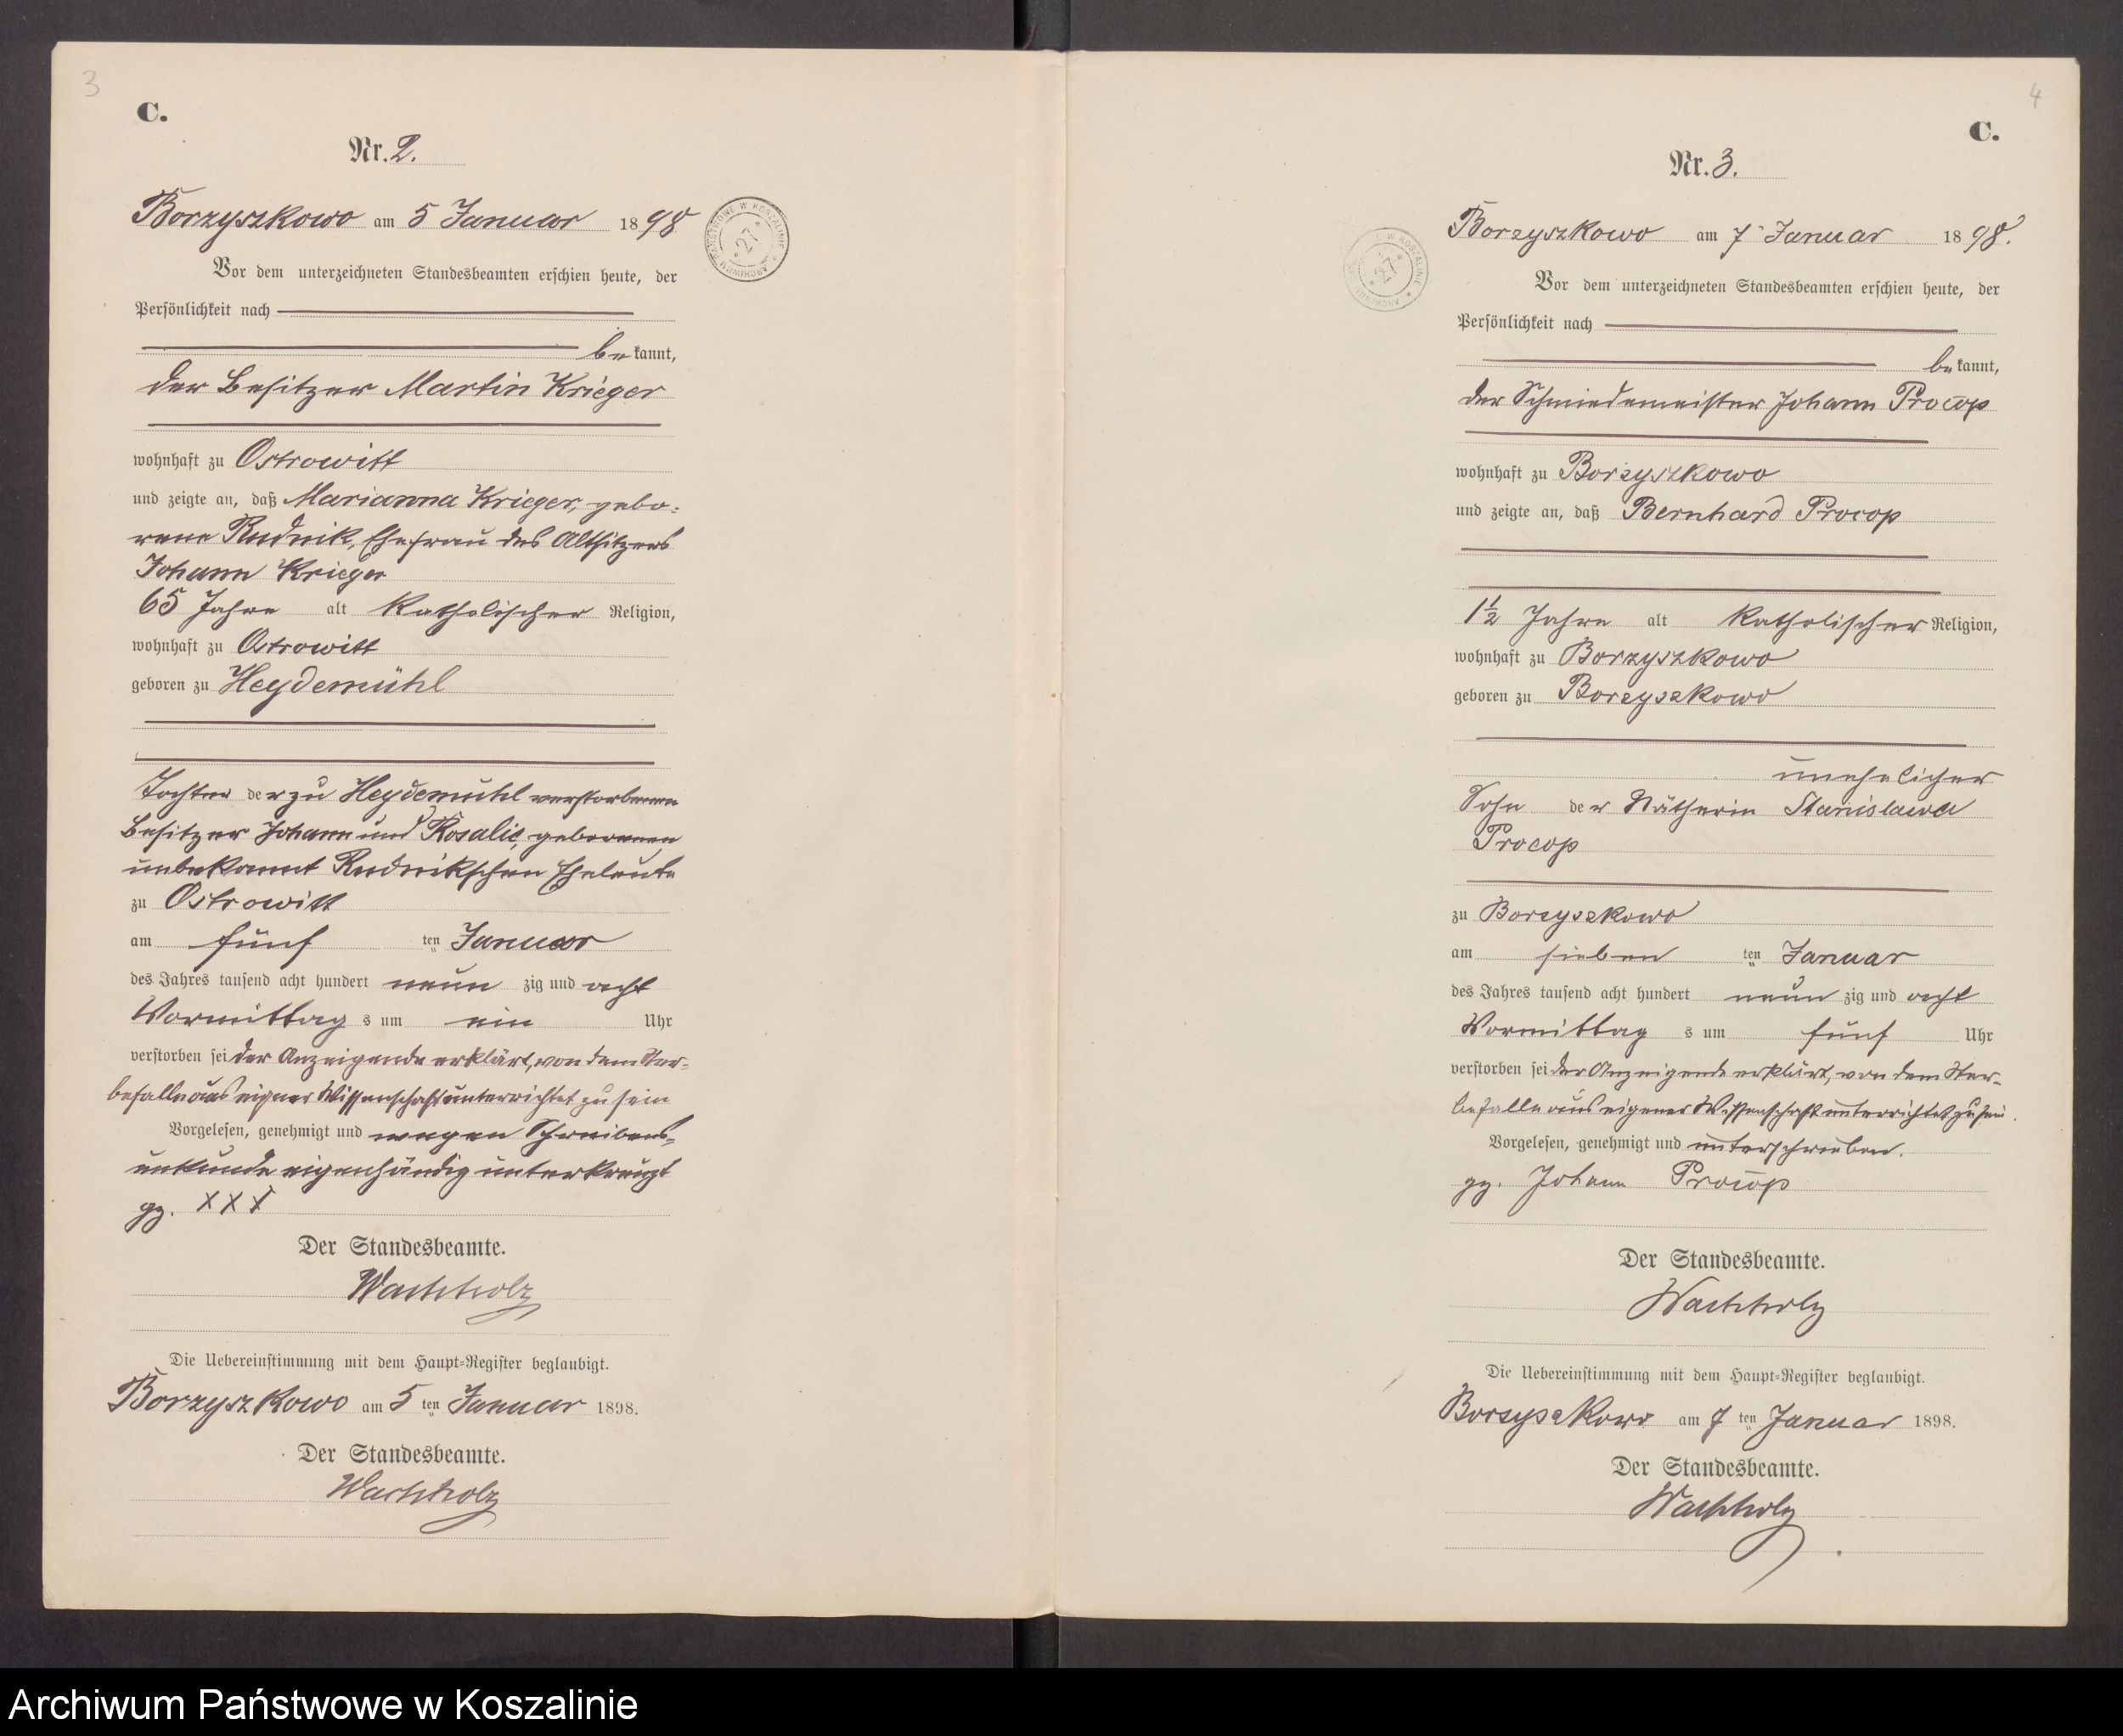 3
C.
Nr. 2.
Borzyszkowo am 5 Januar 1898
Vor dem unterzeichneten Standesbeamten erschien heute, der
Persönlichkeit nach
bekannt,
der Besitzer Martin Krieger
wohnhaft zu Ostrowitt
und zeigte an, daß Marianna Krieger, gebo-
rene Rudnik, Ehefrau des Altsitzers
Johann Krieger
65 Jahre alt katholischer Religion,
wohnhaft zu Ostrowitt
geboren zu Heydemühl
Tochter der zu Heydemühl verstorbenen
Besitzer Johann und Rosalie, geborenen
unbekannt Rudnikschen Eheleute
zu Ostrowitt
am fünf ten Januar
des Jahres tausend acht hundert neun zig und acht
Vormittag s um ein Uhr
verstorben sei der Anzeigende erklärt, von dem Ster-
befalle aus eigner Wissenschaft unterrichtet zu sein
Vorgelesen, genehmigt und wegen Schreibens-
unkunde eigenhändig unterkreuzt
gz. XXX
Der Standesbeamte.
Wachholz
Die Uebereinstimmung mit dem Haupt-Register beglaubigt.
Borzyszkowo am 5 ten Januar 1898.
Der Standesbeamte.
Wachholz
ARCHIWUM PAŃSTWOWE W KOSZALINIE
* 27 *
4
C.
Nr. 3.
Borzyszkowo am 7 Januar 1898.
Vor dem unterzeichneten Standesbeamten erschien heute, der
Persönlichkeit nach
bekannt,
der Schmiedemeister Johann Procop
wohnhaft zu Borzyszkowo
und zeigte an, daß Bernhard Procop
1½ Jahre alt katholischer Religion,
wohnhaft zu Borzyszkowo
geboren zu Borzyszkowo
unehelicher
Sohn der Nätherin Stanislawa
Procop
zu Borzyszkowo
am sieben ten Januar
des Jahres tausend acht hundert neun zig und acht
Vormittag s um fünf Uhr
verstorben sei der Anzeigende erklärt, von dem Ster-
befalle aus eigener Wissenschaft unterrichtet zu sein.
Vorgelesen, genehmigt und unterschrieben.
gz. Johann Procop
Der Standesbeamte.
Wachholz
Die Uebereinstimmung mit dem Haupt-Register beglaubigt.
Borzyszkowo am 7 ten Januar 1898.
Der Standesbeamte.
Wachholz
W KOSZALINIE
* 27 *
Archiwum Państwowe w Koszalinie